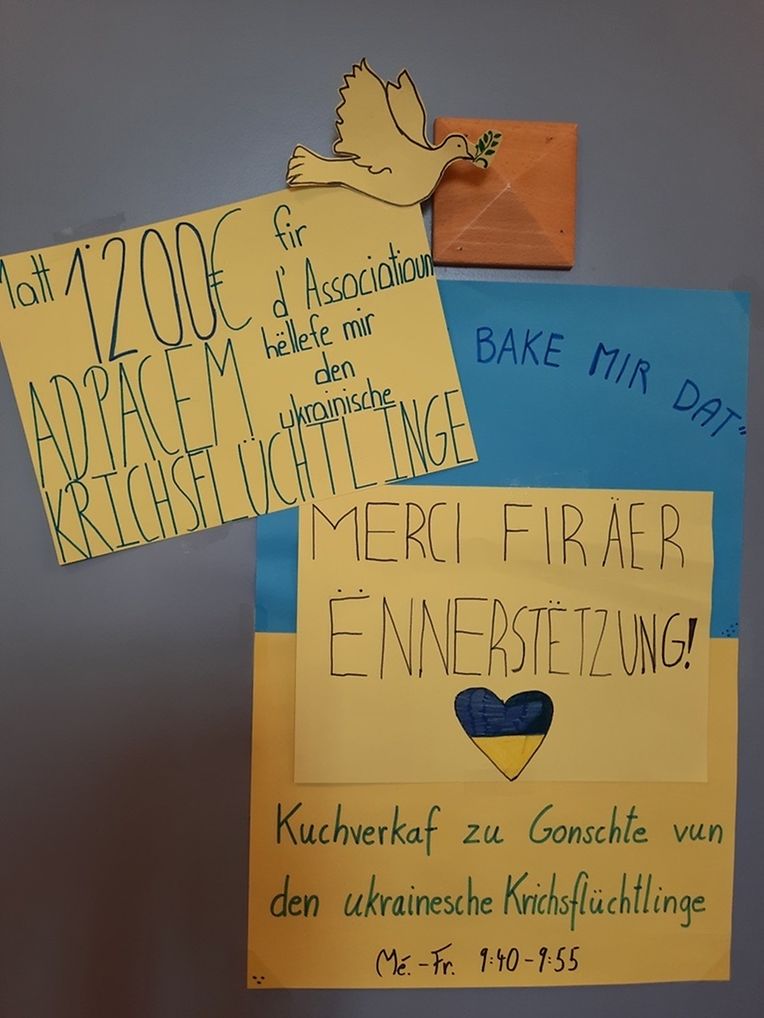 Matt 1'200€ fir
d'Associatioun
ADPACEM hëllefe mir
den
ukrainische
KRICHSFLÜCHTLINGE
BAKE MIR DAT"
MERCI FIR ÄER
ËNNERSTËTZUNG!
Kuchverkaf zu Gonschte vun
den ukrainesche Krichsflüchtlinge
Mé.-Fr. 9:40-9:55